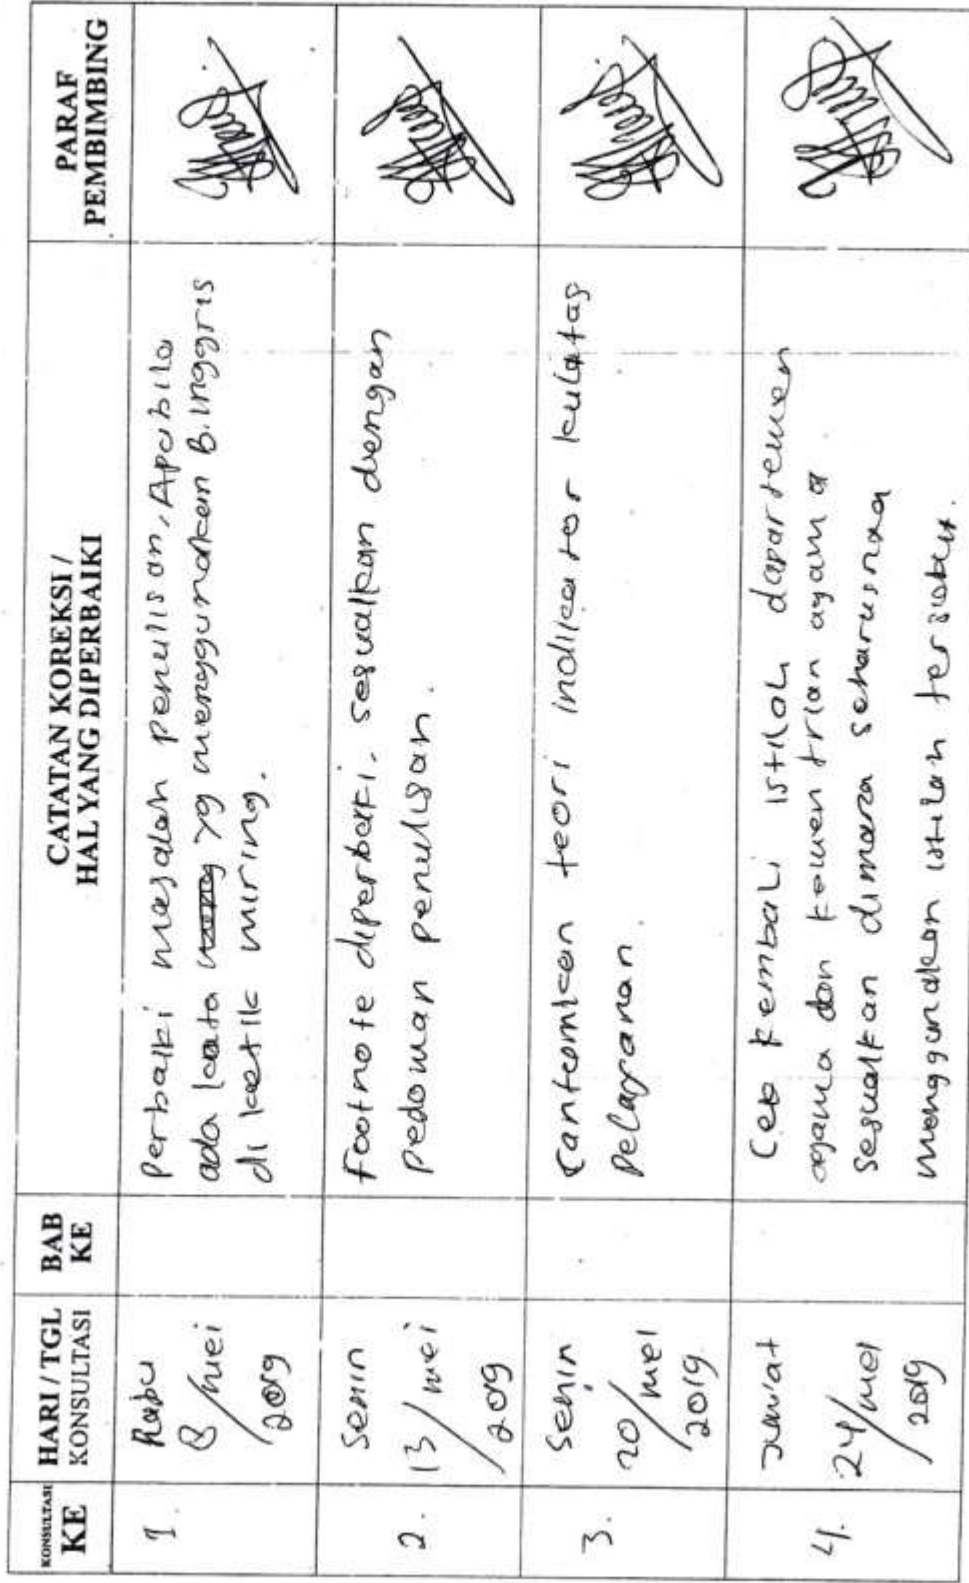 KONSULTASI
KE
HARI / TGL
KONSULTASI
BAB
KE
CATATAN KOREKSI /
HAL YANG DIPERBAIKI
PARAF
PEMBIMBING
1.
Rabu
8/mei
2019
Perbaiki masalah penulisan, Apabila
ada kata yg menggunakan B. Inggris
di ketik miring.
2.
Senin
13/mei
2019
Footnote diperbaiki. sesuaikan dengan
pedoman penulisan.
3.
Senin
20/mei
2019
Cantumkan teori indikator kulatas
pelayanan.
4.
Jum'at
24/mei
2019
Cek kembali istilah departemen
agama dan kementrian agama
sesuaikan dimana seharusnya
menggunakan istilah tersebut.